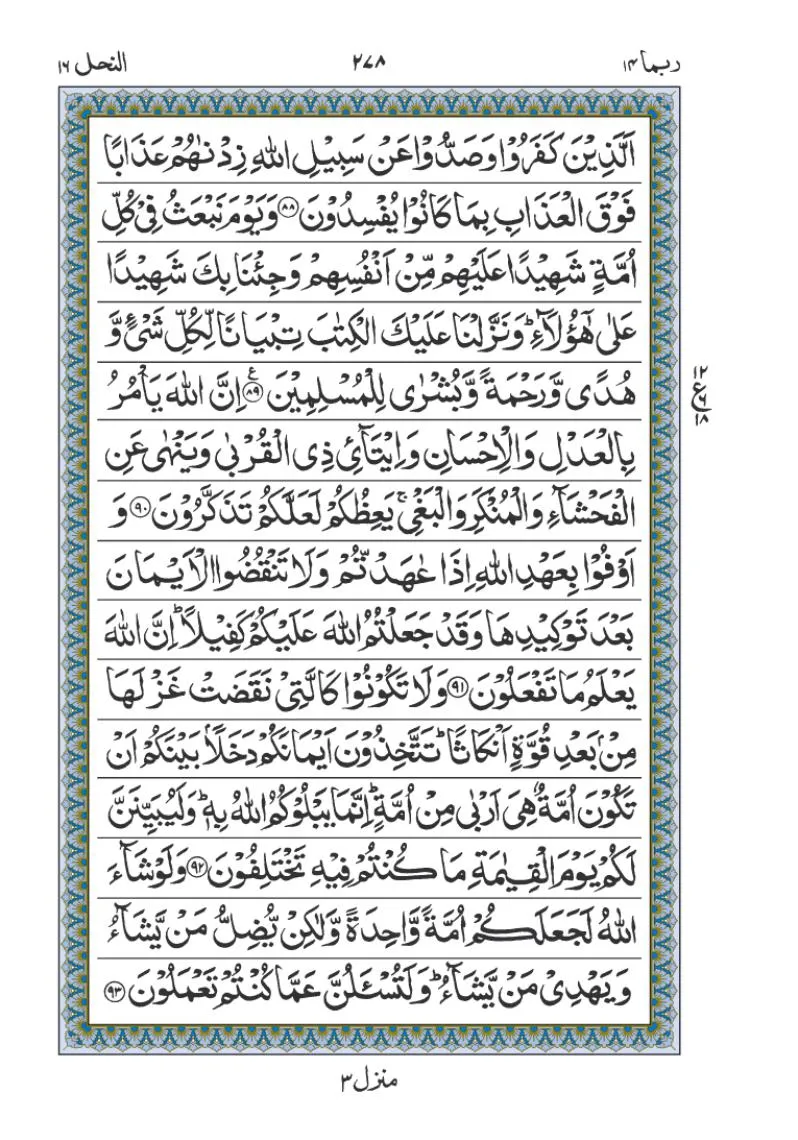 ربما ١٤
٢٧٨
النحل ١٦
اَلَّذِيْنَ كَفَرُوْا وَصَدُّوْا عَنْ سَبِيْلِ اللهِ زِدْنٰهُمْ عَذَابًا
فَوْقَ الْعَذَابِ بِمَا كَانُوْا يُفْسِدُوْنَ ۸۸ وَيَوْمَ نَبْعَثُ فِيْ كُلِّ
اُمَّةٍ شَهِيْدًا عَلَيْهِمْ مِّنْ اَنْفُسِهِمْ وَجِئْنَا بِكَ شَهِيْدًا
عَلٰى هٰٓؤُلَآءِ ؕ وَنَزَّلْنَا عَلَيْكَ الْكِتٰبَ تِبْيَانًا لِّكُلِّ شَيْءٍ وَّ
هُدًى وَّرَحْمَةً وَّبُشْرٰى لِلْمُسْلِمِيْنَ ۸۹ ع اِنَّ اللهَ يَاْمُرُ
بِالْعَدْلِ وَالْاِحْسَانِ وَاِيْتَآئِ ذِى الْقُرْبٰى وَيَنْهٰى عَنِ
الْفَحْشَآءِ وَالْمُنْكَرِ وَالْبَغْيِ ۚ يَعِظُكُمْ لَعَلَّكُمْ تَذَكَّرُوْنَ ۹۰ وَ
اَوْفُوْا بِعَهْدِ اللهِ اِذَا عٰهَدْتُّمْ وَلَا تَنْقُضُوا الْاَيْمَانَ
بَعْدَ تَوْكِيْدِهَا وَقَدْ جَعَلْتُمُ اللهَ عَلَيْكُمْ كَفِيْلًا ؕ اِنَّ اللهَ
يَعْلَمُ مَا تَفْعَلُوْنَ ۹۱ وَلَا تَكُوْنُوْا كَالَّتِيْ نَقَضَتْ غَزْلَهَا
مِنْ بَعْدِ قُوَّةٍ اَنْكَاثًا ؕ تَتَّخِذُوْنَ اَيْمَانَكُمْ دَخَلًا ۢ بَيْنَكُمْ اَنْ
تَكُوْنَ اُمَّةٌ هِيَ اَرْبٰى مِنْ اُمَّةٍ ؕ اِنَّمَا يَبْلُوْكُمُ اللهُ بِهٖ ؕ وَلَيُبَيِّنَنَّ
لَكُمْ يَوْمَ الْقِيٰمَةِ مَا كُنْتُمْ فِيْهِ تَخْتَلِفُوْنَ ۹۲ وَلَوْ شَآءَ
اللهُ لَجَعَلَكُمْ اُمَّةً وَّاحِدَةً وَّلٰكِنْ يُّضِلُّ مَنْ يَّشَآءُ
وَيَهْدِيْ مَنْ يَّشَآءُ ؕ وَلَتُسْـَٔلُنَّ عَمَّا كُنْتُمْ تَعْمَلُوْنَ ۹۳
١٢
ع ٦
١٨
منزل ٣